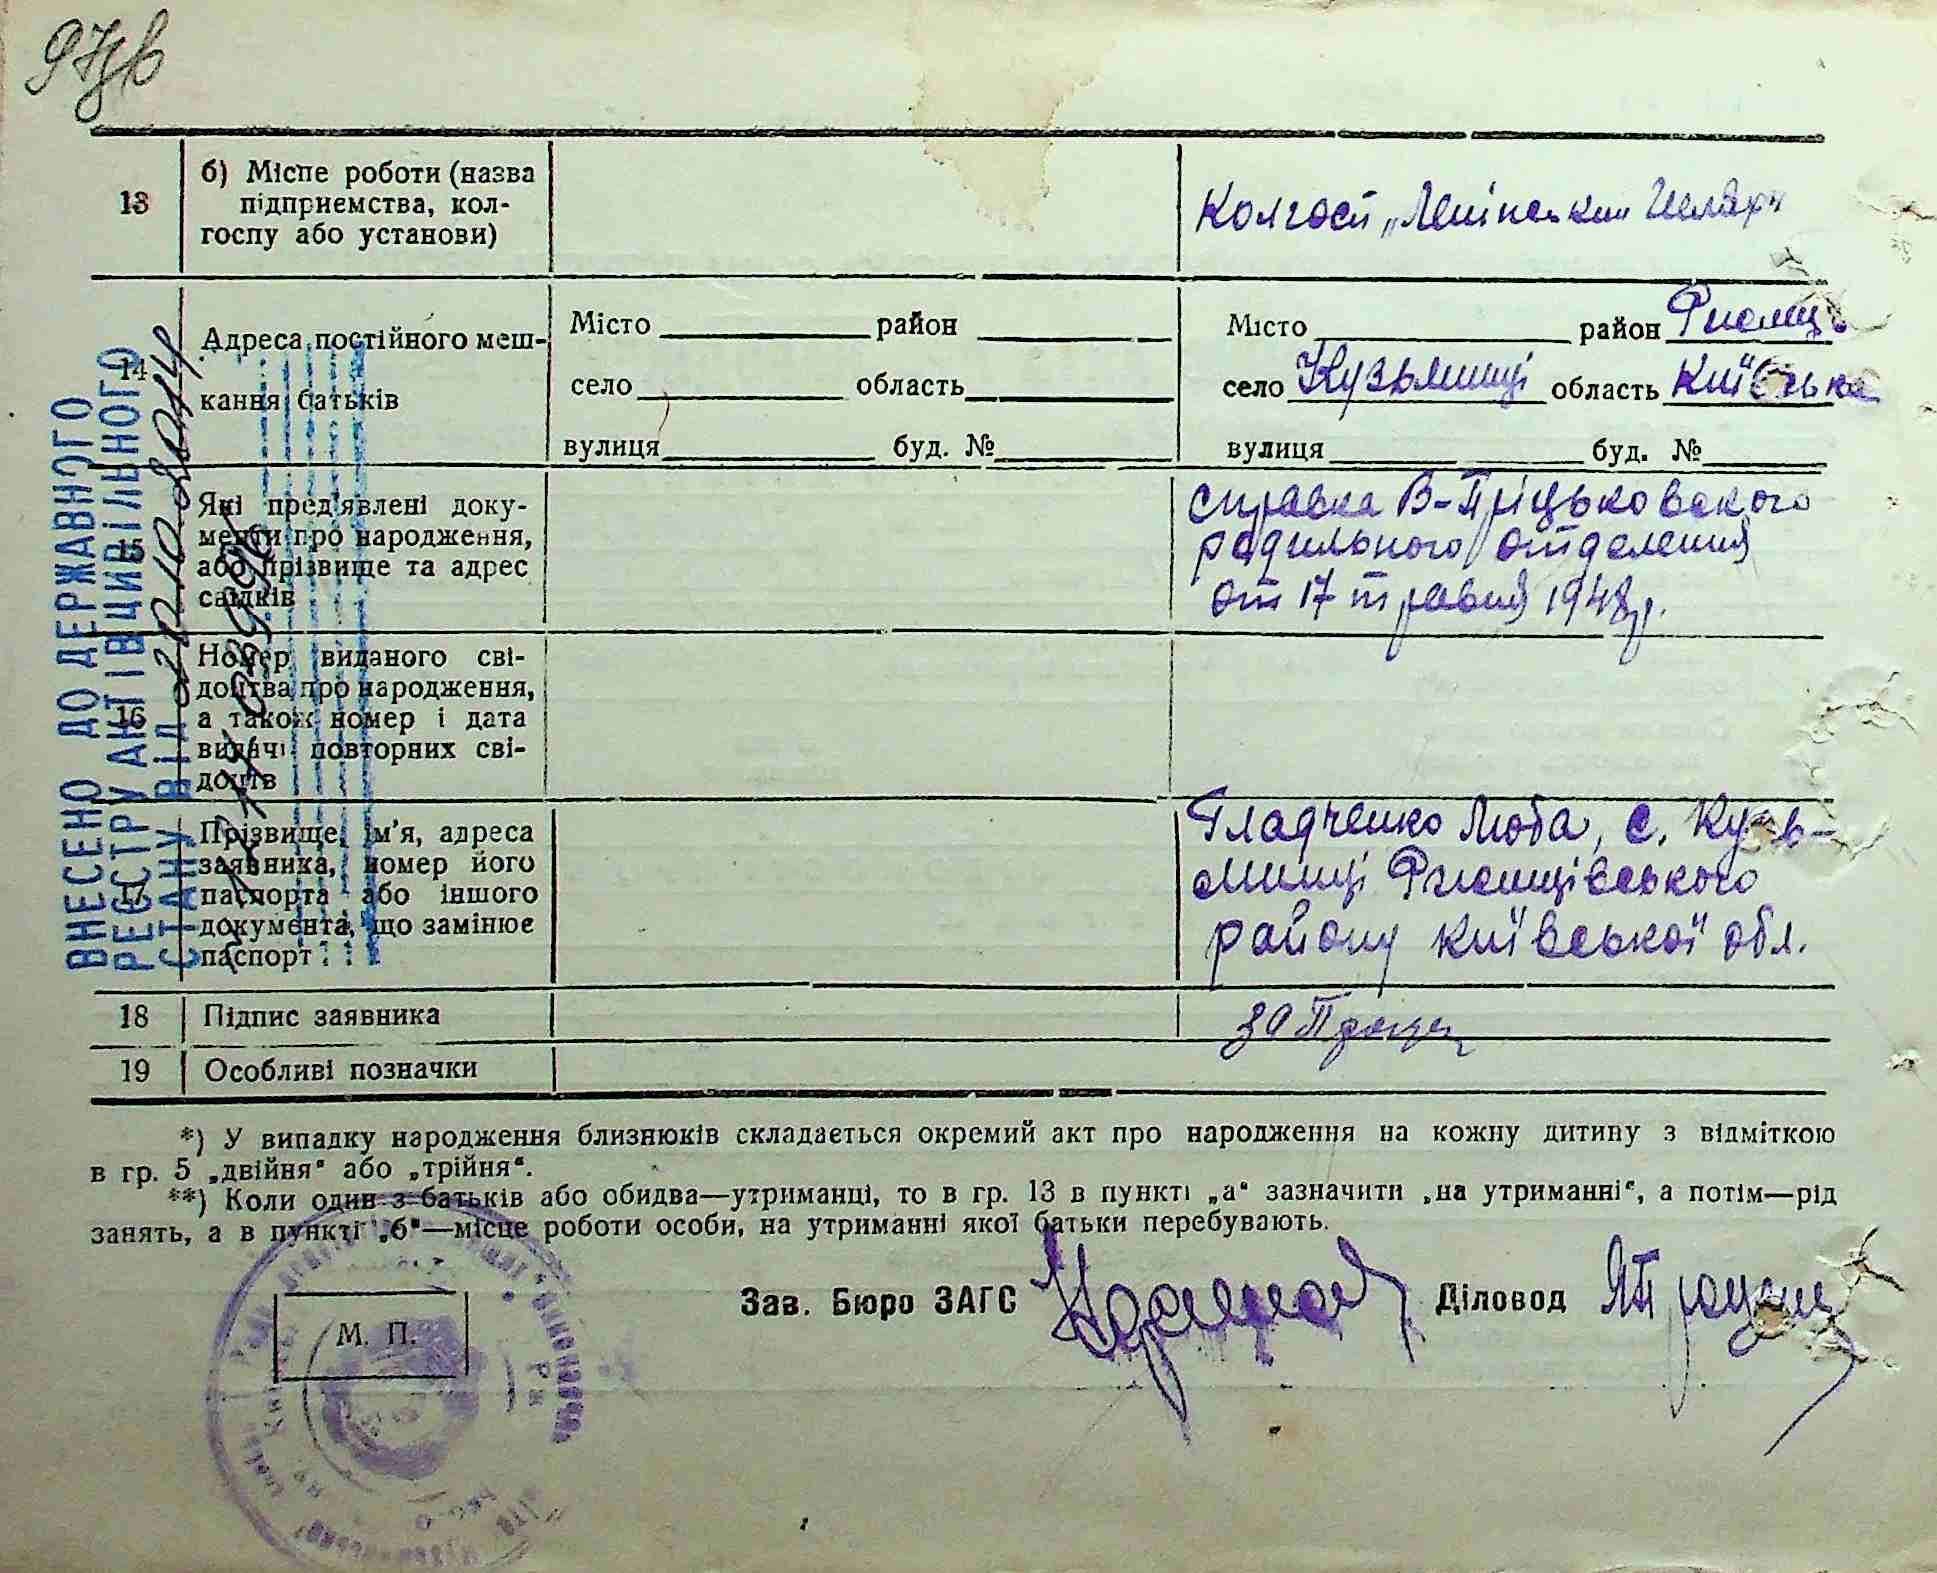 97 зв
13
б) Місце роботи (назва
підприємства, кол-
госпу або установи)
Колгосп „Ленінський Шлях"
14
Адреса постійного меш-
кання батьків
Місто район
село область
вулиця буд. №
Місто район Ржищ.
село Кузьминці область Київська
вулиця буд. №
15
Які пред'явлені доку-
менти про народження,
або прізвище та адрес
свідків
справка В-Пріцьковского
родильного отделения
от 17 травня 1948 р.
16
Номер виданого сві-
доцтва про народження,
а також номер і дата
видачі повторних сві-
доцтв
17
Прізвище, ім'я, адреса
заявника, номер його
паспорта або іншого
документа, що замінює
паспорт
Гладченко Люба, с. Кузь-
минці Ржищівського
району Київської обл.
18 Підпис заявника
за
19 Особливі позначки
ВНЕСЕНО ДО ДЕРЖАВНОГО
РЕЄСТРУ АКТІВ ЦИВІЛЬНОГО
СТАНУ ВІД 22.10.2014
*) У випадку народження близнюків складається окремий акт про народження на кожну дитину з відміткою
в гр. 5 „двійня" або „трійня".
**) Коли один з батьків або обидва—утриманці, то в гр. 13 в пункті „а" зазначити „на утриманні", а потім—рід
занять, а в пункті „б"—місце роботи особи, на утриманні якої батьки перебувають.
М. П.
Зав. Бюро ЗАГС Діловод